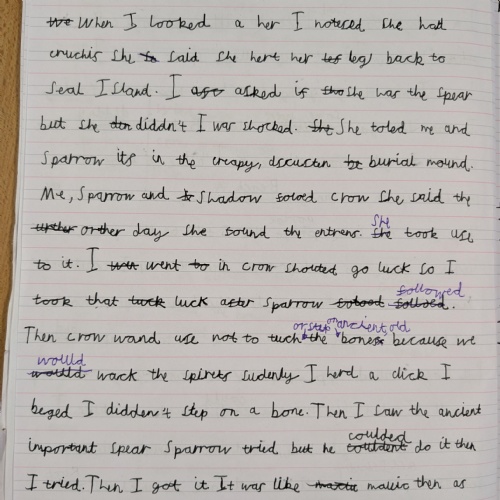 We When I looked a her I noticed she had
cruchis she to said she hert her leg leg back to
Seal Island. I ase asked if sho she was the spear
but she din diddn't I was shocked. She She toled me and
Sparrow its in the creapy, discusten be burial mound.
Me, Sparrow and S Shadow foloed crow she said the
urther orther day she found the entrens. she She took use
to it. I wen went to in crow shouted, go luck so I
took that luck luck after sparrow foloed folloed. followed,
Then crow wand use not to tuch or step the on ancient, old bones because we
would would wack the spirets sudenly I herd a click I
beged I didden't step on a bone. Then I saw the ancient
important spear Sparrow tried but he couldent coulded do it then
I tried. Then I got it It was like macic then as